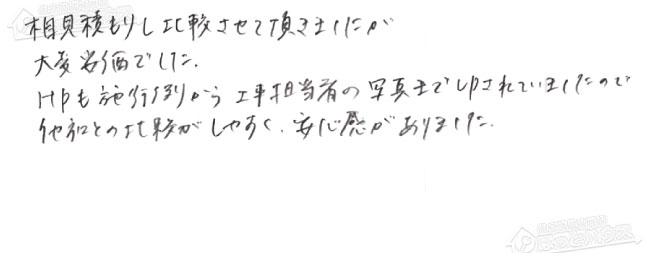 相見積もりし比較させて頂きましたが
大変安価でした。
HPも施行例から工事担当者の写真までupされていましたので
他社との比較がしやすく、安心感がありました。